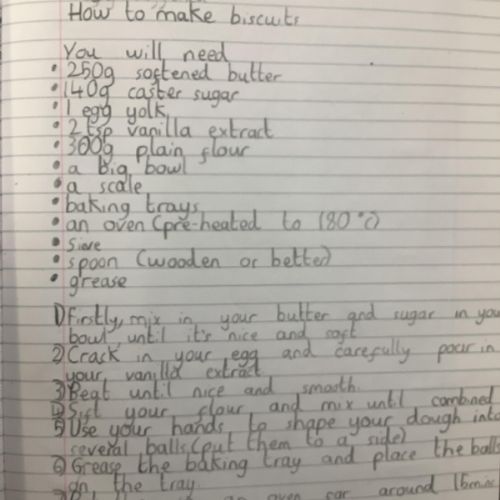 How to make biscuits
You will need
• 250g softened butter
• 140g caster sugar
• 1 egg yolk
• 2 tsp vanilla extract
• 300g plain flour
• a big bowl
• a scale
• baking trays
• an oven (pre-heated to 180°c)
• Sieve
• spoon (wooden or better)
• grease
1) Firstly, mix in your butter and sugar in you
bowl, until it's nice and soft
2) Crack in your egg and carefully pour in
your vanilla extract.
3) Beat until nice and smooth.
4) Sift your flour and mix until combined
5) Use your hands to shape your dough into
several balls (put them to a side)
6) Grease the baking tray and place the balls
on the tray.
an oven for around 15